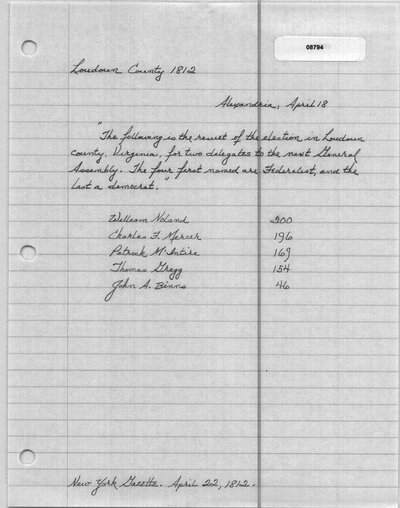 08794
Loudoun County 1812
Alexandria, April 18
"The following is the result of the election in Loudoun
county, Virginia, for two delegates to the next General
Assembly. The four first named are Federalist, and the
last a democrat.
William Noland 200
Charles F. Mercer 196
Patrick M'Intire 169
Thomas Gregg 154
John A. Binns 46
New York Gazette. April 22, 1812.